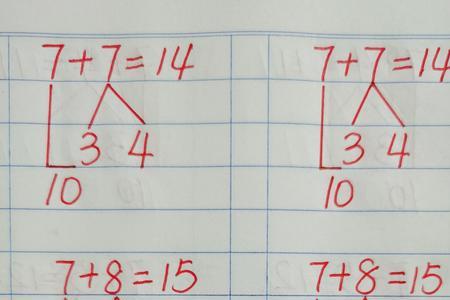 7+7=14 7+7=14
3 4 3 4
10 10
7+8=15 7+8=15